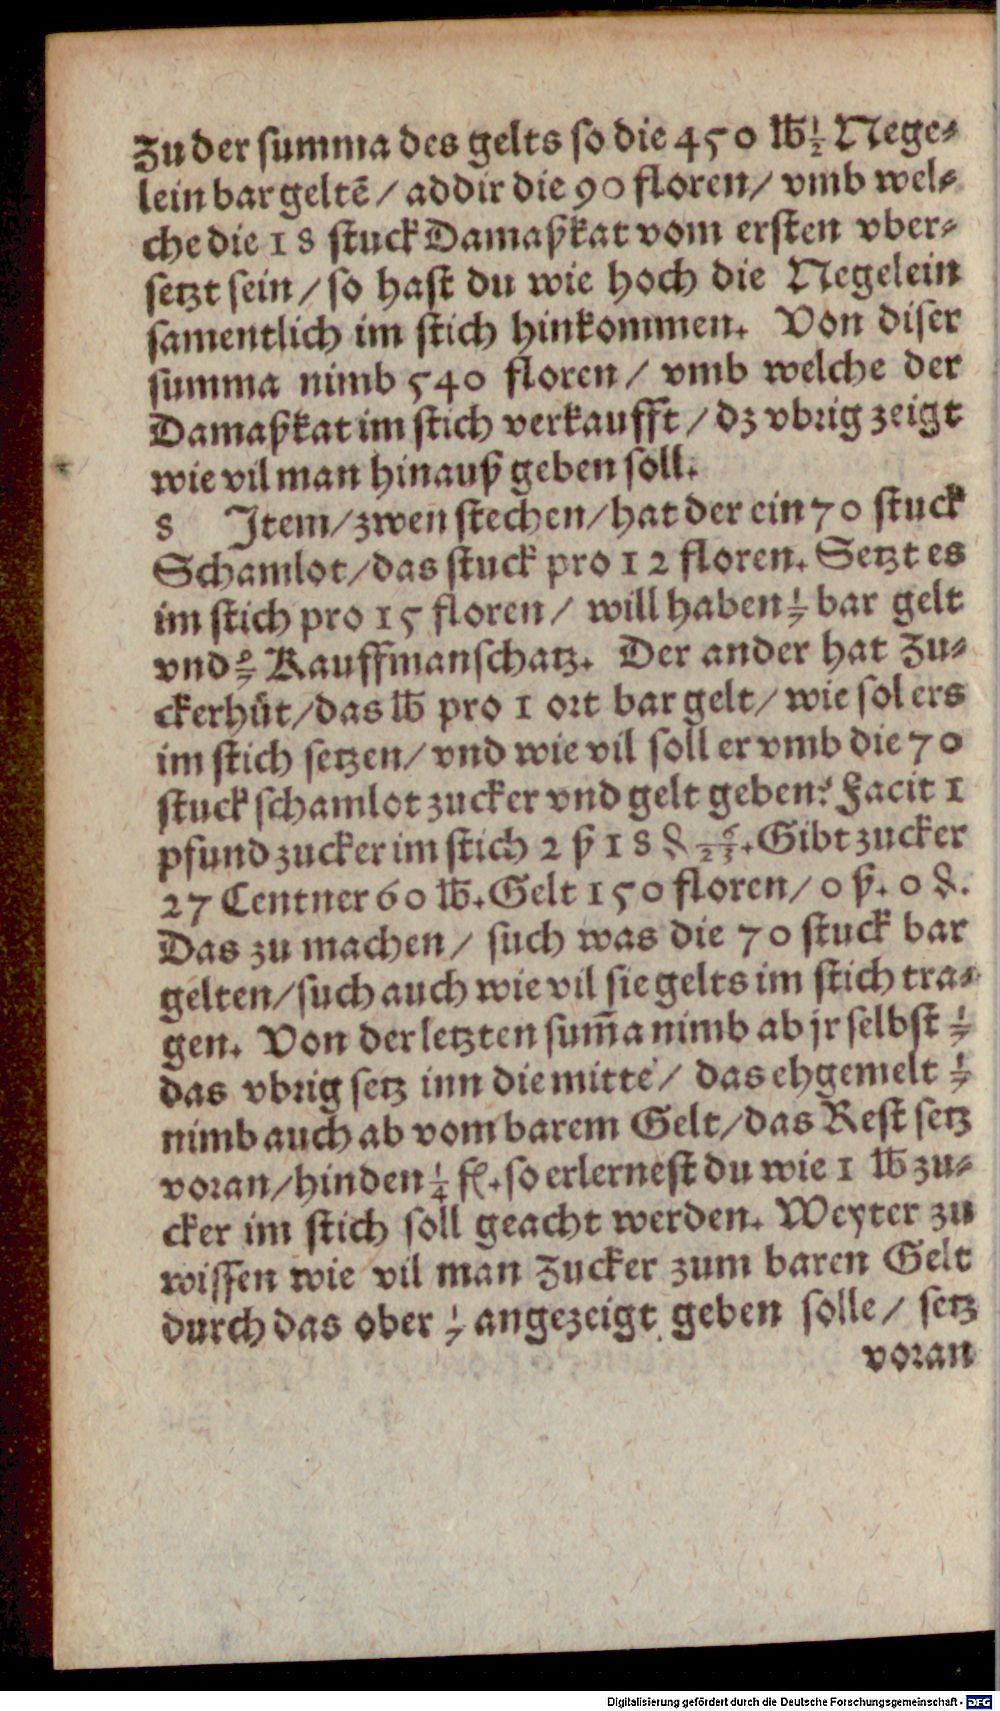 Zu der summa des gelts so die 450 ℔ ½ Nege⸗
lein bar geltē / addir die 90 floren / vmb wel⸗
che die 18 stuck Damaßkat vom ersten vber⸗
setzt sein / so hast du wie hoch die Negelein
samentlich im stich hinkommen. Von diser
summa nimb 540 floren / vmb welche der
Damaßkat im stich verkaufft / dz vbrig zeigt
wie vil man hinauß geben soll.
8 Item / zwen stechen / hat der ein 70 stuck
Schamlot / das stuck pro 12 floren. Setzt es
im stich pro 15 floren / will haben 1/7 bar gelt
vnd 6/7 Kauffmanschatz. Der ander hat Zu⸗
ckerhüt / das ℔ pro 1 ort bar gelt / wie sol ers
im stich setzen / vnd wie vil soll er vmb die 70
stuck schamlot zucker vnd gelt geben? Facit 1
pfund zucker im stich 2 ß 18 ₰ 6/23. Gibt zucker
27 Centner 60 ℔. Gelt 150 floren / 0 ß. 0 ₰.
Das zu machen / such was die 70 stuck bar
gelten / such auch wie vil sie gelts im stich tra⸗
gen. Von der letzten sum̄a nimb ab jr selbst 1/7
das vbrig setz inn die mitte / das ehgemelt 1/7
nimb auch ab vom barem Gelt / das Rest setz
voran / hinden ¼ fl. so erlernest du wie 1 ℔ zu⸗
cker im stich soll geacht werden. Weyter zu
wissen wie vil man Zucker zum baren Gelt
durch das ober 1/7 angezeigt geben solle / setz
voran
Digitalisierung gefördert durch die Deutsche Forschungsgemeinschaft - DFG